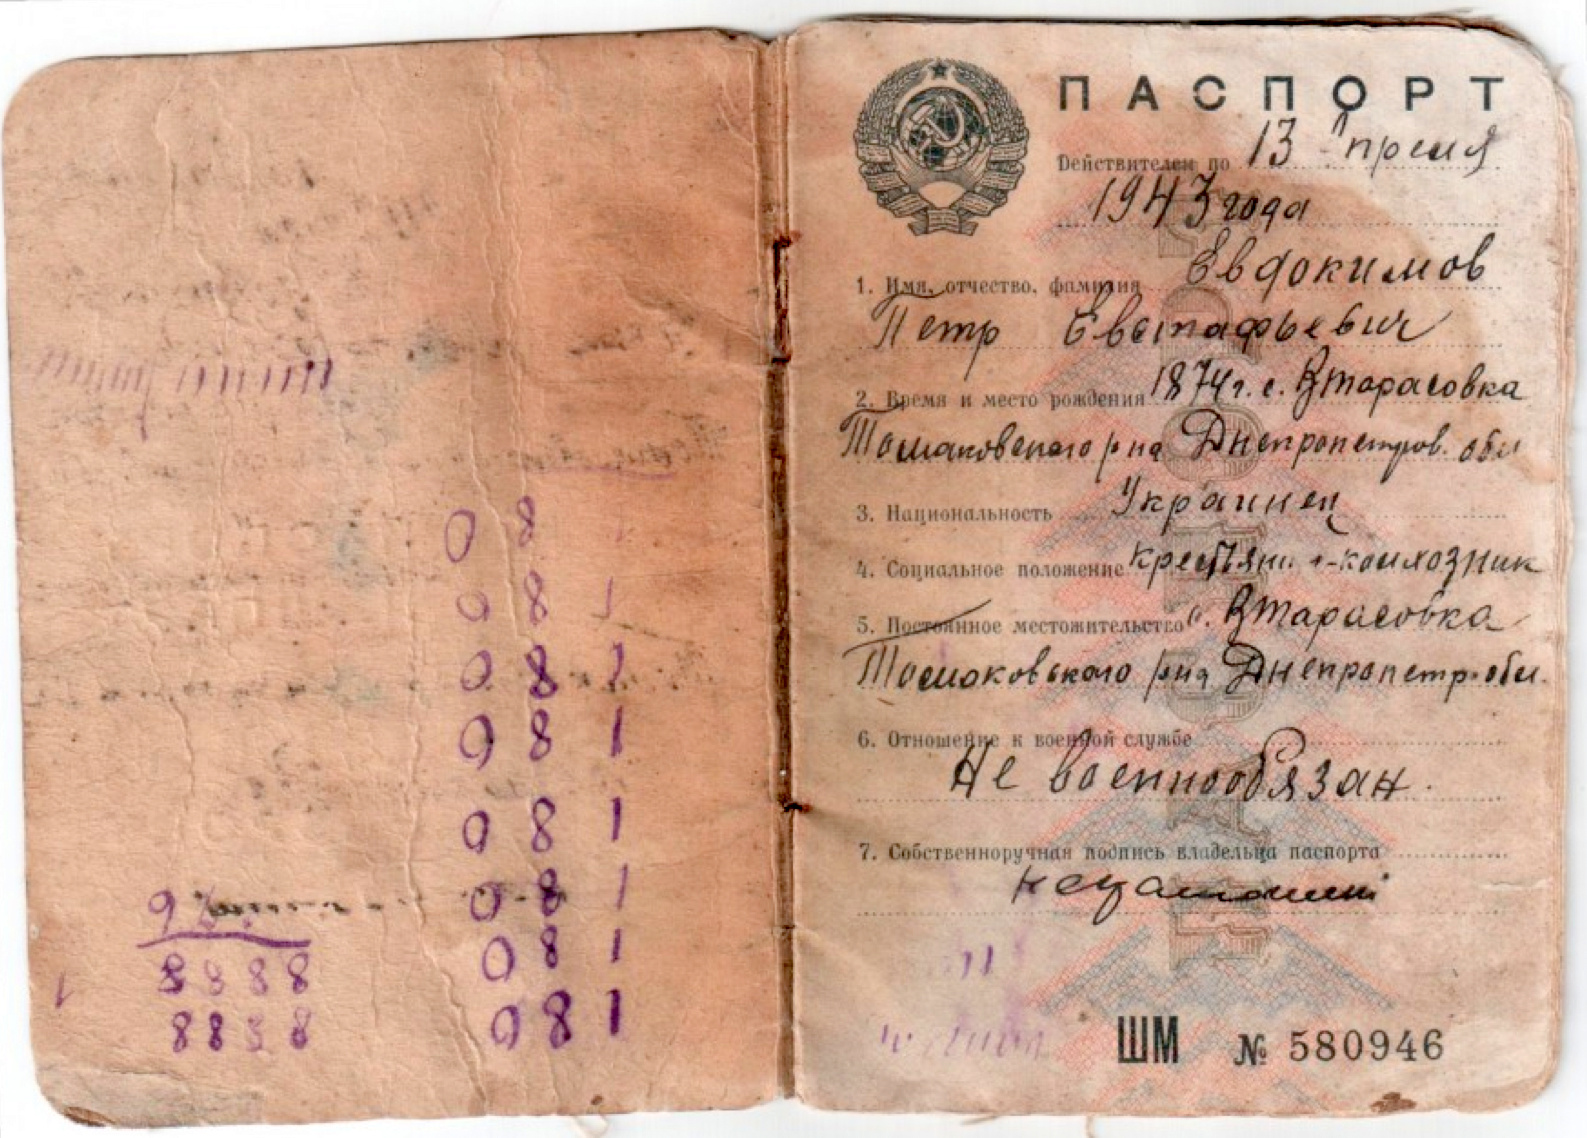 0 8
0 8 1
0 8 1
0 8 1
0 8 1
0 8 1
0 8 1
0 8 1
8 8 8 8
8 8 8 8
ПАСПОРТ
Действителен по 13 Апреля
1943 года
1. Имя, отчество, фамилия Евдокимов
Петр Евстафьевич
2. Время и место рождения 1874 г. с. ВТарасовка
Томаковского р на Днепропетров. обл
3. Национальность Украинец
4. Социальное положение крестьянин-колхозник
5. Постоянное местожительство с. ВТарасовка
Томаковского р на Днепропетр. обл.
6. Отношение к военной службе
Не военнообязан.
7. Собственноручная подпись владельца паспорта
ШМ № 580946